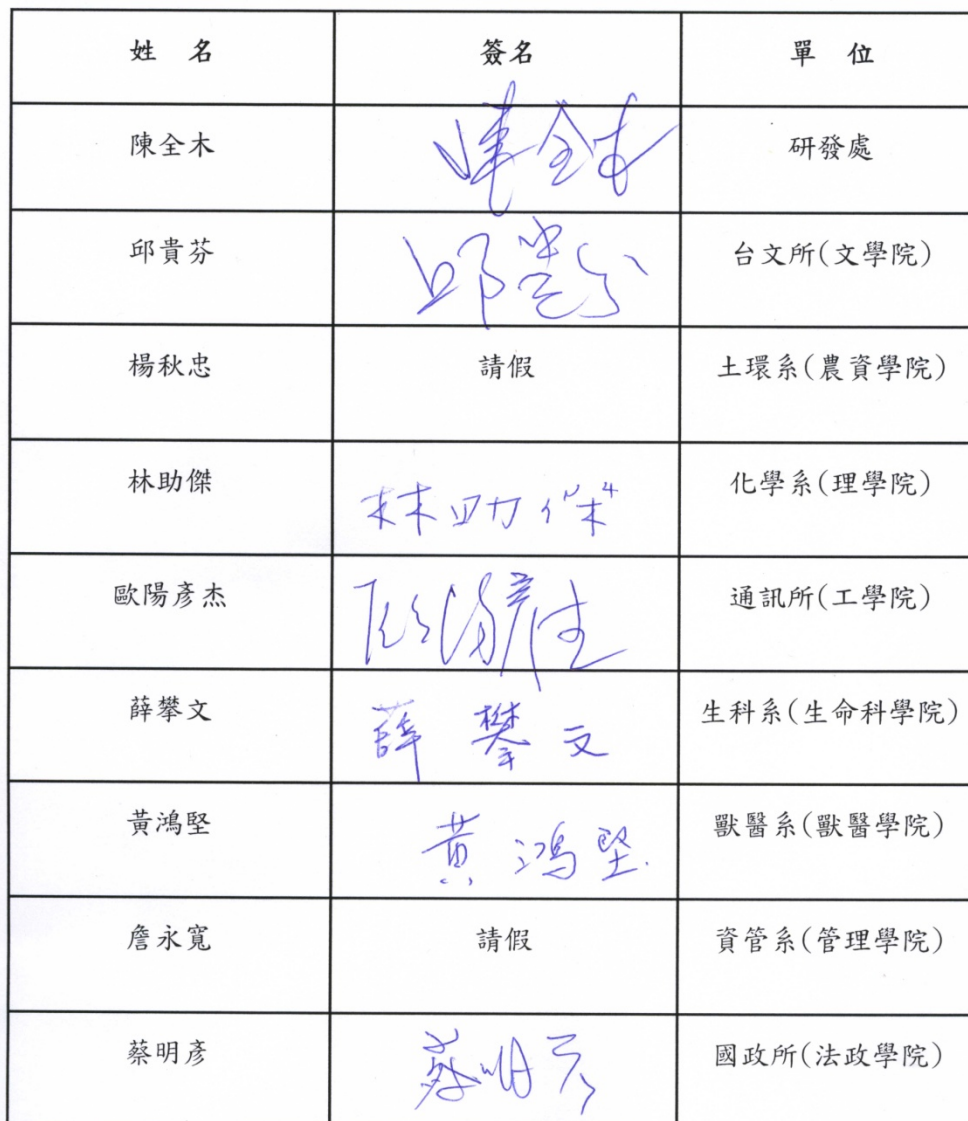 姓 名 簽名 單 位
陳全木 陳全木 研發處
邱貴芬 邱貴芬 台文所(文學院)
楊秋忠 請假 土環系(農資學院)
林助傑 林助傑 化學系(理學院)
歐陽彥杰 歐陽彥杰 通訊所(工學院)
薛攀文 薛攀文 生科系(生命科學院)
黃鴻堅 黃鴻堅 獸醫系(獸醫學院)
詹永寬 請假 資管系(管理學院)
蔡明彥 蔡明彥 國政所(法政學院)